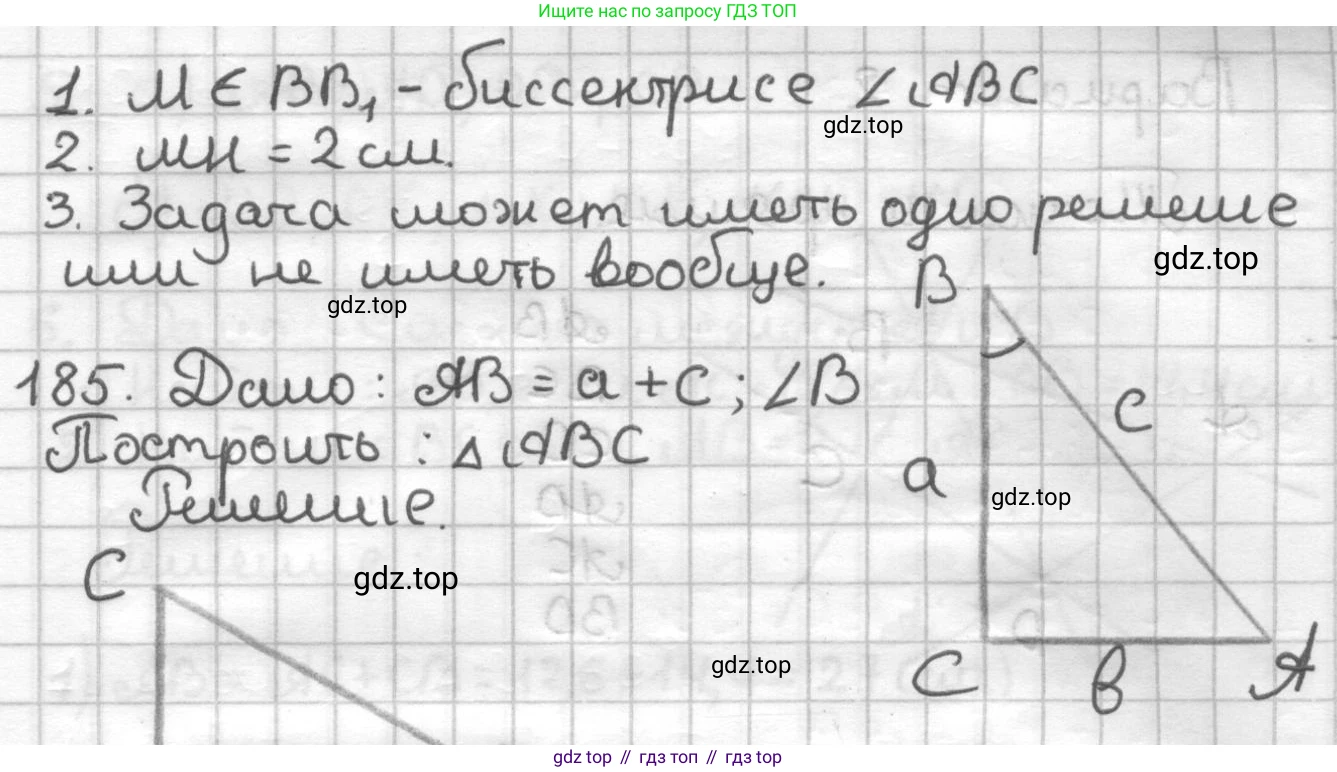 Ищите нас по запросу ГДЗ ТОП
1. M ∈ BB₁ - биссектрисе ∠ABC
gdz.top
2. MH = 2 см.
3. Задача может иметь одно решение
или не иметь вообще.
gdz.top
gdz.top
B
185. Дано: AB = a + c; ∠B
c
Построить: △ABC
a
gdz.top
Решение.
C
gdz.top
gdz.top
C
в
A
gdz top // гдз топ // gdz top